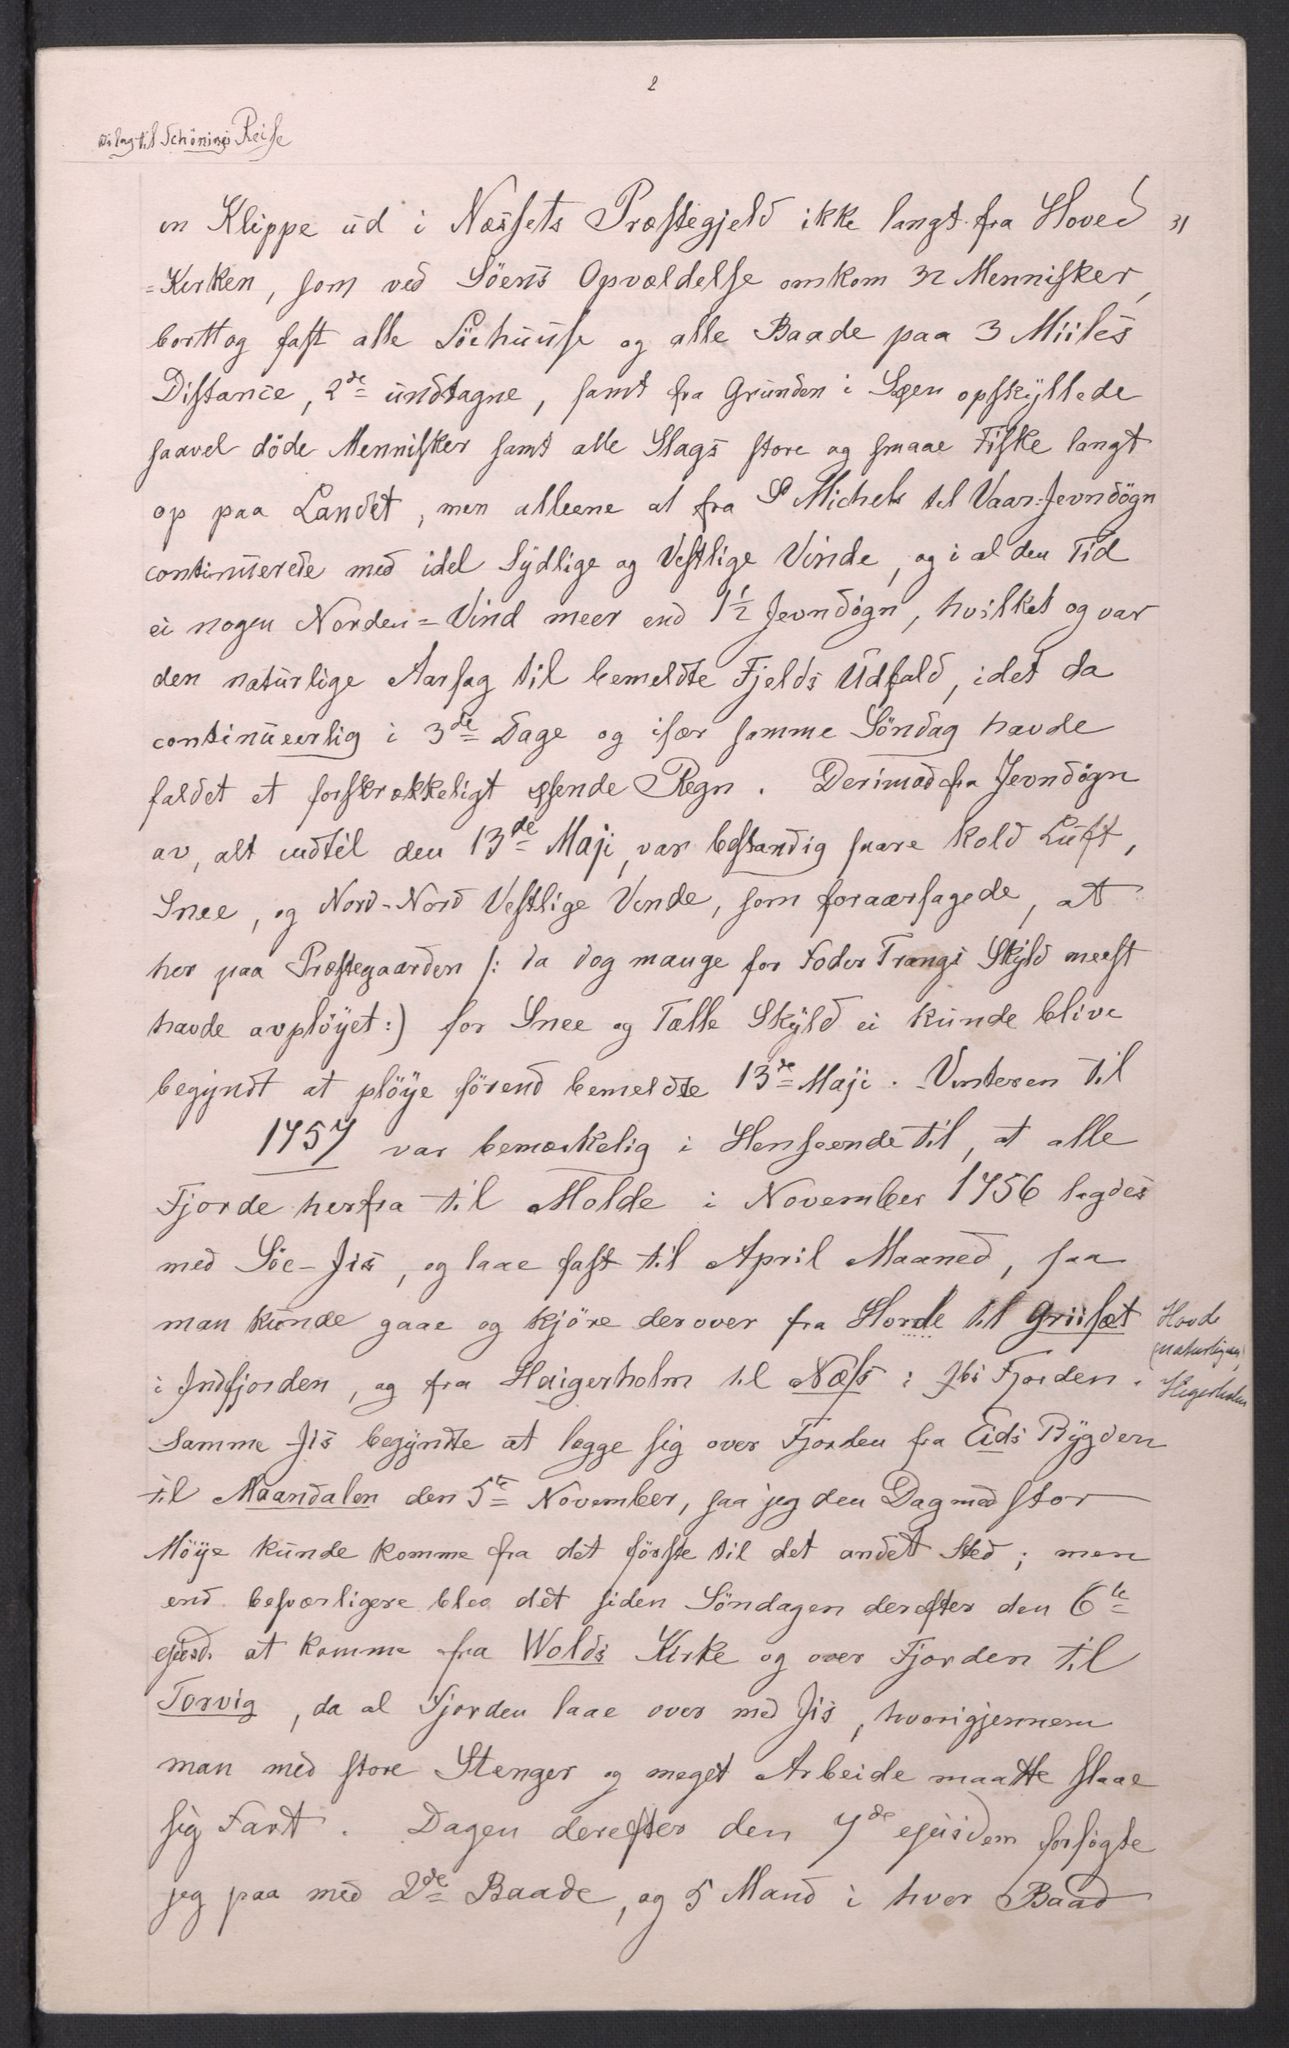 2
Bilag til Schönings Reise
en Klippe ud i Næssets Præstegjeld ikke langt fra Hoved 31
=Kirken, som ved Söens Opvældelse omkom 32 Mennisker,
borttog fast alle Söehuuse og alle Baade paa 3 Miiles
Distance, 2de undtagne, samt fra Grunden i Søen opskyllede
saavel döde Mennisker samt alle Slags store og smaae Fiske langt
op paa Landet, men alleene at fra S Michels til Vaar-Jevndögn
continuerede med idel Sydlige og Vestlige Vinde, og i al den Tid
ei nogen Norden=Vind meer end 1 1/2 Jevndögn, hvilket og var
den naturlige Aarsag til bemeldte Fjelds Udfald, idet da
continueerlig i 3de Dage og især samme Söndag havde
faldet et forskrækkeligt øsende Regn. Derimod fra Jevndögn
av, alt indtil den 13de Maji, var bestandig svare kold Luft,
Snee, og Nord-Nord Vestlige Vinde, som foraarsagede, at
her paa Præstegaarden /: da dog mange for Foder Trangs Skyld meest
havde avplöyet:) for Snee og Tælle Skyld ei kunde blive
begyndt at plöye förend bemeldte 13de Maji. Vinteren til
1757 var bemærkelig i Henseende til, at alle
Fjorde herfra til Molde i November 1756 lagdes
med Söe-Jis, og laae fast til April Maaned, saa
man kunde gaae og kjöre derover fra Horde til Griisæt
Hovde
(naturligvis)
i Indfjorden, og fra Haigerholm til Næss i Jbs Fjorden.
Hegerholm
Samme Jis begyndte at lægge sig over Fjorden fra Eids Bygden
til Maandalen den 5te November, saa jeg den Dag med stor
Möye kunde komme fra det förste til det andet Sted; men
end besværligere blev det siden Söndagen derefter den 6te
ejusd. at komme fra Wolds Kirke og over Fjorden til
Torvig, da al Fjorden laae over med Jis, hvorigjennem
man med store Stenger og meget Arbeide maatte slaae
sig Fart. Dagen derefter den 7de ejusdem forsögte
jeg paa med 2de Baade, og 5 Mand i hver Baad